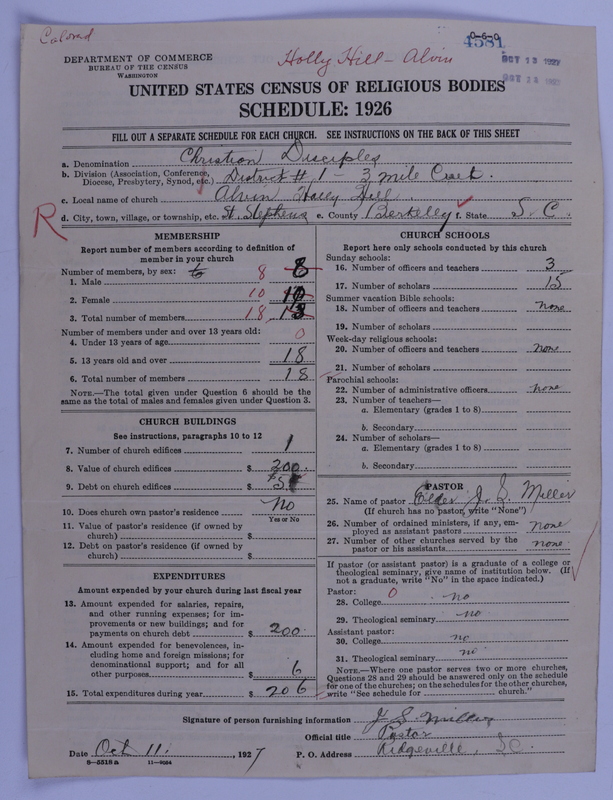 Colored
0-6-0
4581
Holly Hill - Alvin
OCT 13 1927
OCT 28 1927
DEPARTMENT OF COMMERCE
BUREAU OF THE CENSUS
WASHINGTON
UNITED STATES CENSUS OF RELIGIOUS BODIES
SCHEDULE: 1926
FILL OUT A SEPARATE SCHEDULE FOR EACH CHURCH. SEE INSTRUCTIONS ON THE BACK OF THIS SHEET
a. Denomination Christian Disciples
b. Division (Association, Conference, Diocese, Presbytery, Synod, etc.) District #1 - 3 mile Creek.
c. Local name of church Alvin Holly Hill
d. City, town, village, or township, etc. St. Stephens e. County Berkelley f. State S. C.
R
MEMBERSHIP
Report number of members according to definition of
member in your church
Number of members, by sex:
1. Male 8 8
2. Female 10 10
3. Total number of members 18 18
Number of members under and over 13 years old:
4. Under 13 years of age 0
5. 13 years old and over 18
6. Total number of members 18
NOTE.—The total given under Question 6 should be
same as the total of males and females given under Question 3.
CHURCH BUILDINGS
See instructions, paragraphs 10 to 12
7. Number of church edifices 1
8. Value of church edifices $ 200.
9. Debt on church edifices $
10. Does church own pastor's residence No
Yes or No
11. Value of pastor's residence (if owned by
church) $
12. Debt on pastor's residence (if owned by
church) $
EXPENDITURES
Amount expended by your church during last fiscal year
13. Amount expended for salaries, repairs,
and other running expenses; for im-
provements or new buildings; and for
payments on church debt $ 200
14. Amount expended for benevolences, in-
cluding home and foreign missions; for
denominational support; and for all
other purposes $ 6
15. Total expenditures during year $ 206
CHURCH SCHOOLS
Report here only schools conducted by this church
Sunday schools:
16. Number of officers and teachers 3
17. Number of scholars 15
Summer vacation Bible schools:
18. Number of officers and teachers none
19. Number of scholars
Week-day religious schools:
20. Number of officers and teachers none
21. Number of scholars
Parochial schools:
22. Number of administrative officers none
23. Number of teachers—
a. Elementary (grades 1 to 8)
b. Secondary
24. Number of scholars—
a. Elementary (grades 1 to 8)
b. Secondary
PASTOR
25. Name of pastor Elder J. S. Miller
(If church has no pastor, write "None")
26. Number of ordained ministers, if any, em-
ployed as assistant pastors none
27. Number of other churches served by the
pastor or his assistants none
If pastor (or assistant pastor) is a graduate of a college or
theological seminary, give name of institution below. (If
not a graduate, write "No" in the space indicated.)
Pastor: 0
28. College no
29. Theological seminary no
Assistant pastor:
30. College no
31. Theological seminary no
NOTE.—Where one pastor serves two or more churches,
Questions 28 and 29 should be answered only on the schedule
for one of the churches; on the schedules for the other churches,
write "See schedule for church."
Signature of person furnishing information J. S. Miller
Official title Pastor
Date Oct 11, 1927 P. O. Address Ridgeville, S.C.
8—5518a 11—9024